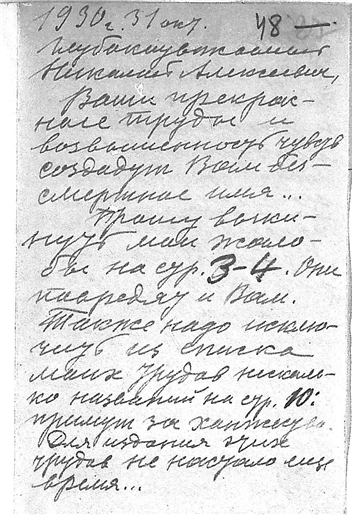 1930 г. 31 окт. 48
Глубокоуважаемый
Николай Алексеевич,
Ваши прекрас-
ные труды и
возвышенность чувств
создадут Вам бес-
смертное имя...
Прошу выки-
нуть мои жало-
бы на стр. 3-4. Они
повредят и Вам.
Также надо исклю-
чить из списка
моих трудов несколь-
ко названий на стр. 10:
примут за ханжество.
Для издания этих
трудов не настало еще
время...